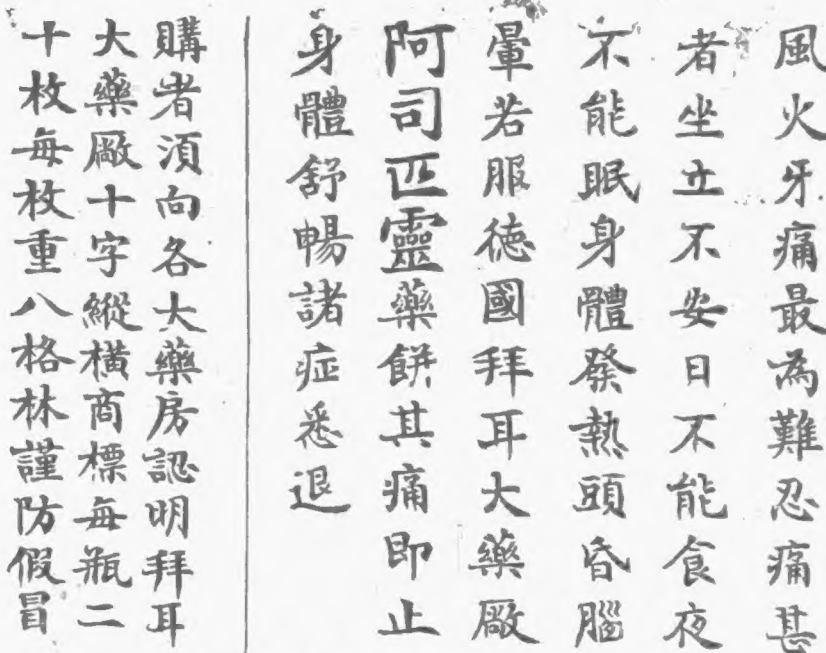 風火牙痛最為難忍痛甚
者坐立不安日不能食夜
不能眠身體發熱頭昏腦
暈若服德國拜耳大藥厰
阿司匹靈藥餅其痛即止
身體舒暢諸症悉退
購者須向各大藥房認明拜耳
大藥厰十字縱橫商標每瓶二
十枚每枚重八格林謹防假冒